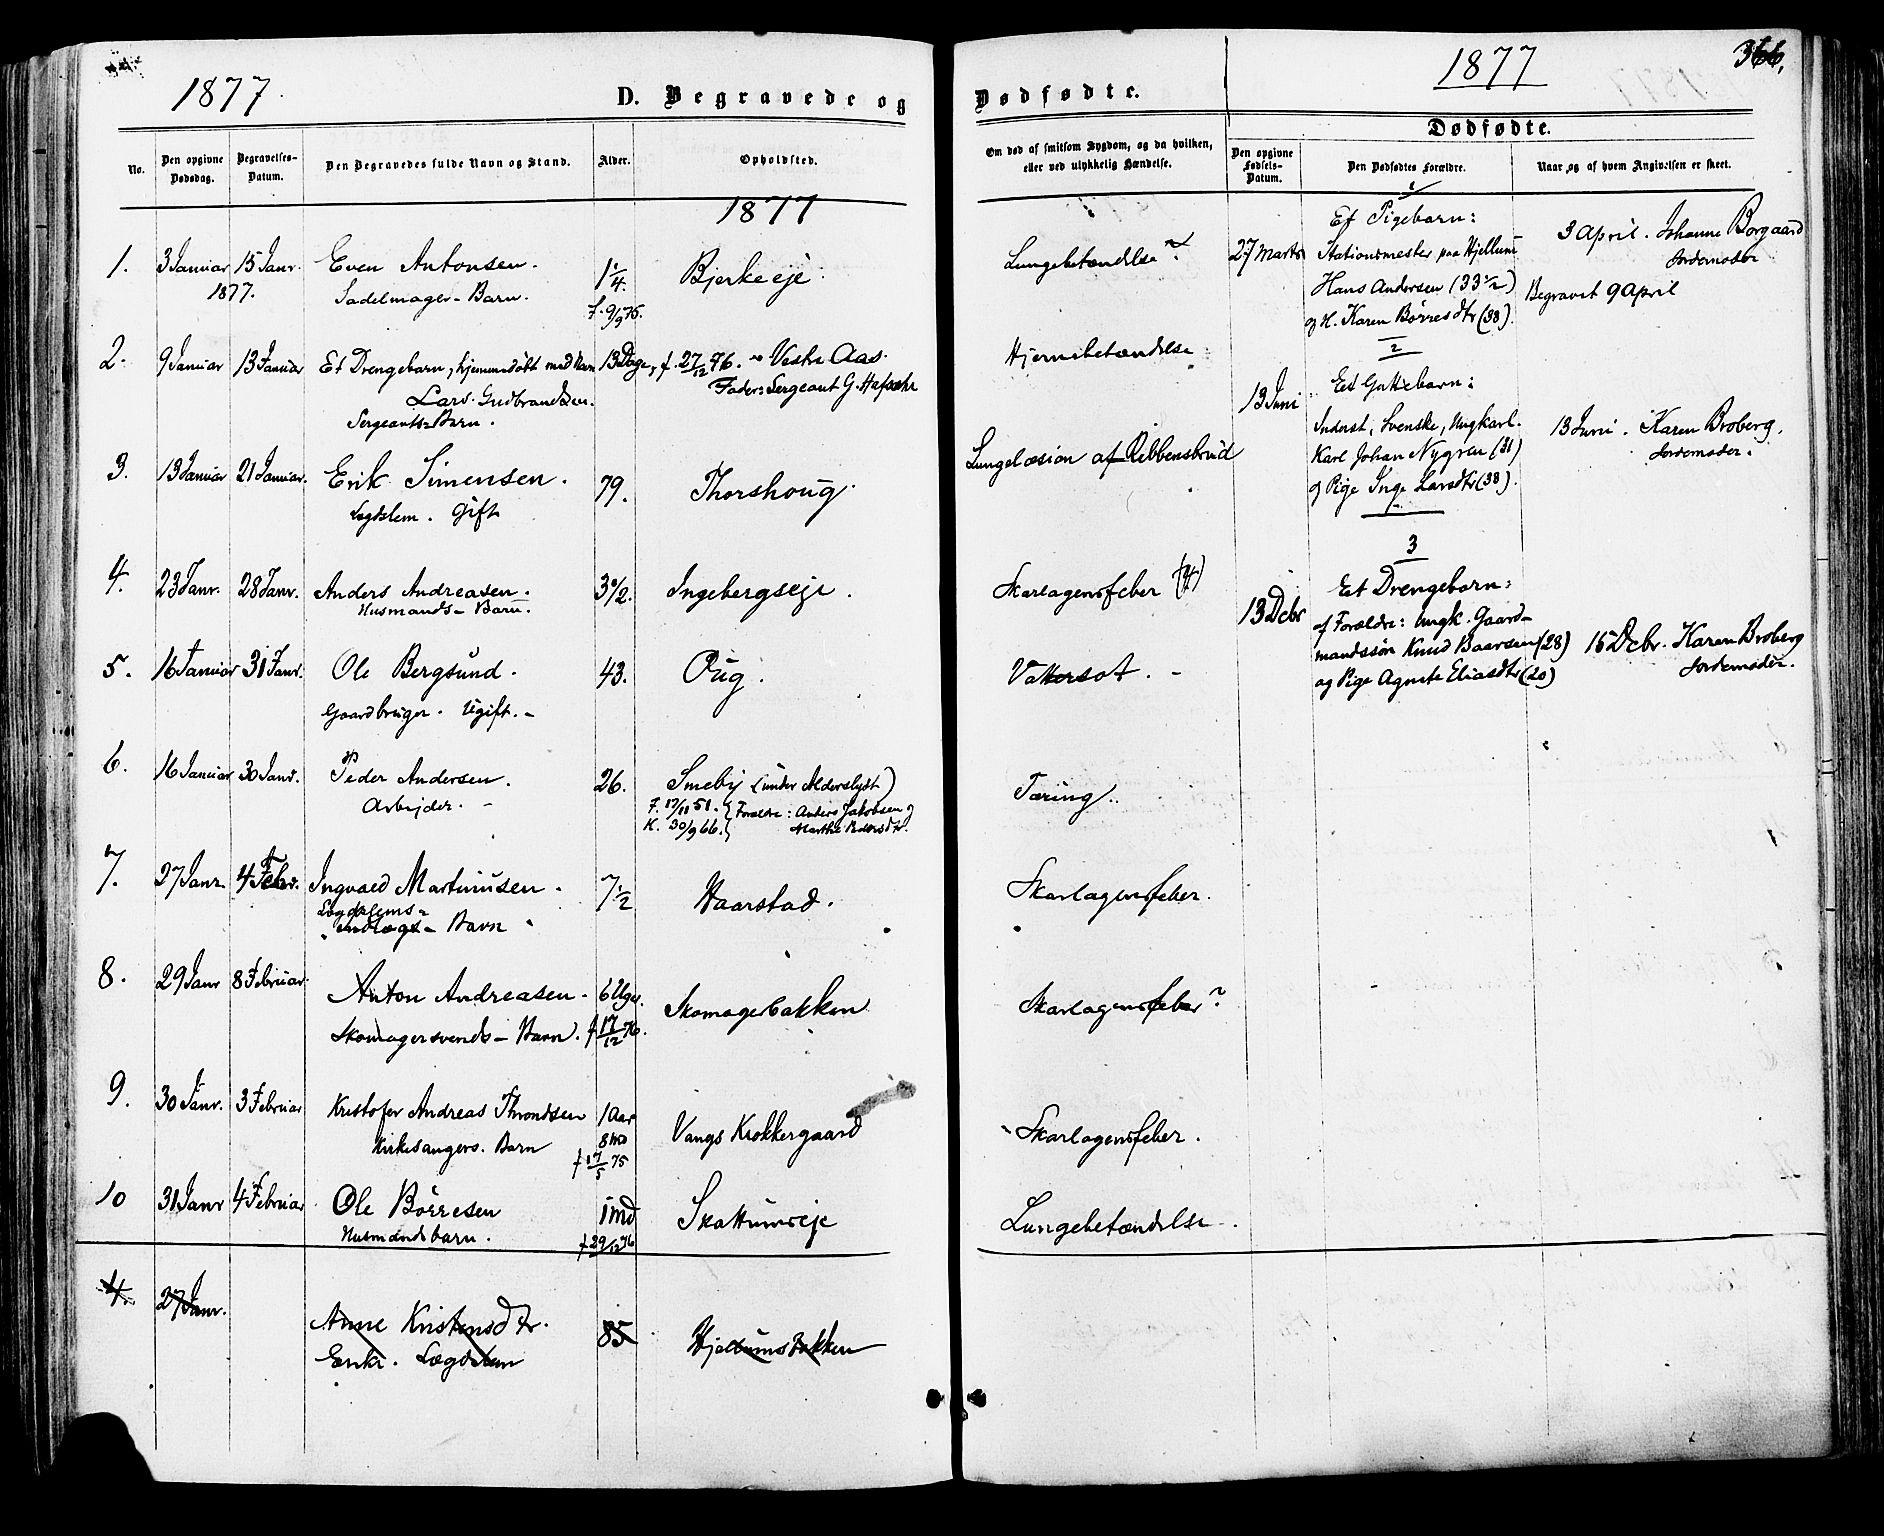 1877.
D. Begravede og
No.
Den opgivne Dødsdag.
Begravelses-Datum.
Den Begravedes fulde Navn og Stand.
Alder.
Opholdsted.
1877
1. 3 Januar 15 Janr. Even Antonsen. 1 1/4 Bjerke eje.
1877. Sadelmager-Barn. f. 9/9 75.
2. 9 Januar 13 Januar Et Drengebarn, hjemmedøbt med Navn 13 Dage, f. 27/12 76. Vestre Aas.
Lars Gudbrandsen. Fader: Sergeant G.
Sergeants-Barn.
3. 13 Januar 21 Januar. Erik Simensen. 79. Thorshoug.
Lægdslem. Gift
4. 23 Janr. 28 Janr. Anders Andreasen. Ingebergseje.
Husmands-Barn.
5. 16 Januar 31 Janr. Ole Bergsund. 43.
Gaardbruger. Ugift.-
6. 16 Januar 30 Janr. Peder Andersen. 26. Smeby (under Alderslyst)
Arbejder. - F. 17/11 51. Forældre: Anders Jakobsen og
K. 30/9 66. Marthe Pedersdtr.
7. 27 Janr. 4 Febr. Ingvald Martinusen. 7 1/2 Haarstad.
Lægdslems-
Indlægs-Barn
8. 29 Janr 8 Februar Anton Andreasen. 6 Uger. Skomagerbakken
Skomagersvends-Barn. f 17/12 76.
9. 30 Janr. 3 Februar Kristofer Andreas Throndsen 1 Aar Vangs Klokkergaard
Kirkesangers. Barn 8 Md
f 17/5 75
10 31 Janr 4 Februar Ole Børresen 1 Md Skattumseje
Husmandsbarn. f 29/12 76
4. 27 Janr. Anne Kristensdtr. 85 Hjellumsbakken
Enke. Lægdslem
Dødfødte.
1877
366,
Om død af smitsom Sygdom, og da hvilken,
eller ved ulykkelig Hændelse.
Dødfødte.
Den opgivne Fødsels-Datum.
Den Dødfødtes Forældre.
Naar og af hvem Angivelsen er skeet.
Lungebetændelse?
Hjernebetændelse
Lungelæsion af Ribbensbrud
Skarlagensfeber
Vattersot. -
Tæring.
Skarlagensfeber.
Skarlagensfeber?
Skarlagensfeber.
Lungebetændelse
1
Et Pigebarn:
27 Marts Stationsmester paa Hjellum
Hans Andersen (33 1/2)
og H. Karen Børresdtr (38).
3 April. Johanne Borgaard
Jordemoder
Begravet 9 April
2
Et Guttebarn:
13 Juni Inderst, Svenske, Ungkarl.
Karl Johan Nygren (31)
og Pige Inge Larsdtr (38).
13 Juni. Karen Broberg,
Jordemoder.
3
Et Drengebarn:
13 Debr af Forældre: Ungk. Gaard-
mandssøn Knud Baarsen (28)
og Pige Agnete Eliasdtr (20)
15 Debr. Karen Broberg
Jordemoder.